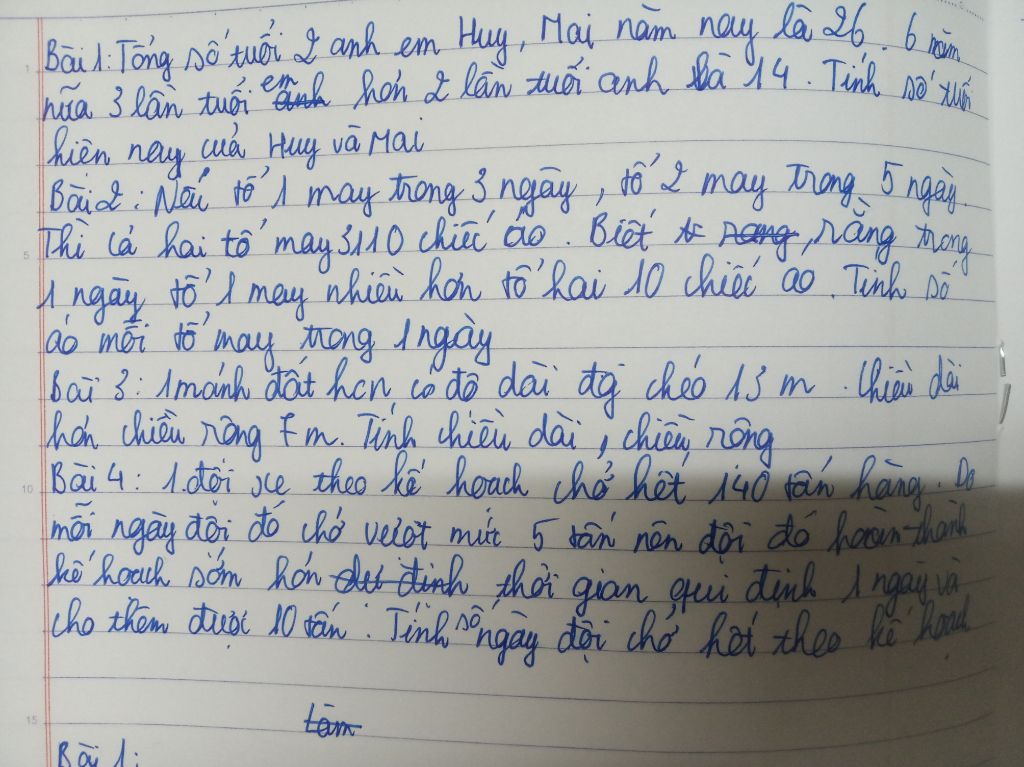 Bài 1: Tổng số tuổi 2 anh em Huy, Mai năm nay là 26. 6 năm
nữa 3 lần tuổi em anh hơn 2 lần tuổi anh là 14. Tính số tuổi
hiện nay của Huy và Mai
Bài 2: Nếu tổ 1 may trong 3 ngày, tổ 2 may trong 5 ngày.
Thì cả hai tổ may 3110 chiếc áo. Biết rằng trong
1 ngày tổ 1 may nhiều hơn tổ hai 10 chiếc áo. Tính số
áo mỗi tổ may trong 1 ngày
Bài 3: 1 mảnh đất hcn có độ dài đg chéo 13 m. Chiều dài
hơn chiều rộng 7 m. Tính chiều dài, chiều rộng
Bài 4: 1. đội xe theo kế hoạch chở hết 140 tấn hàng. Do
mỗi ngày đội đó chở vượt mức 5 tấn nên đội đó hoàn thành
kế hoạch sớm hơn dự định thời gian qui định 1 ngày và
chở thêm được 10 tấn. Tính số ngày đội chở hết theo kế hoạch
làm
Bài 1:
1
5
10
15